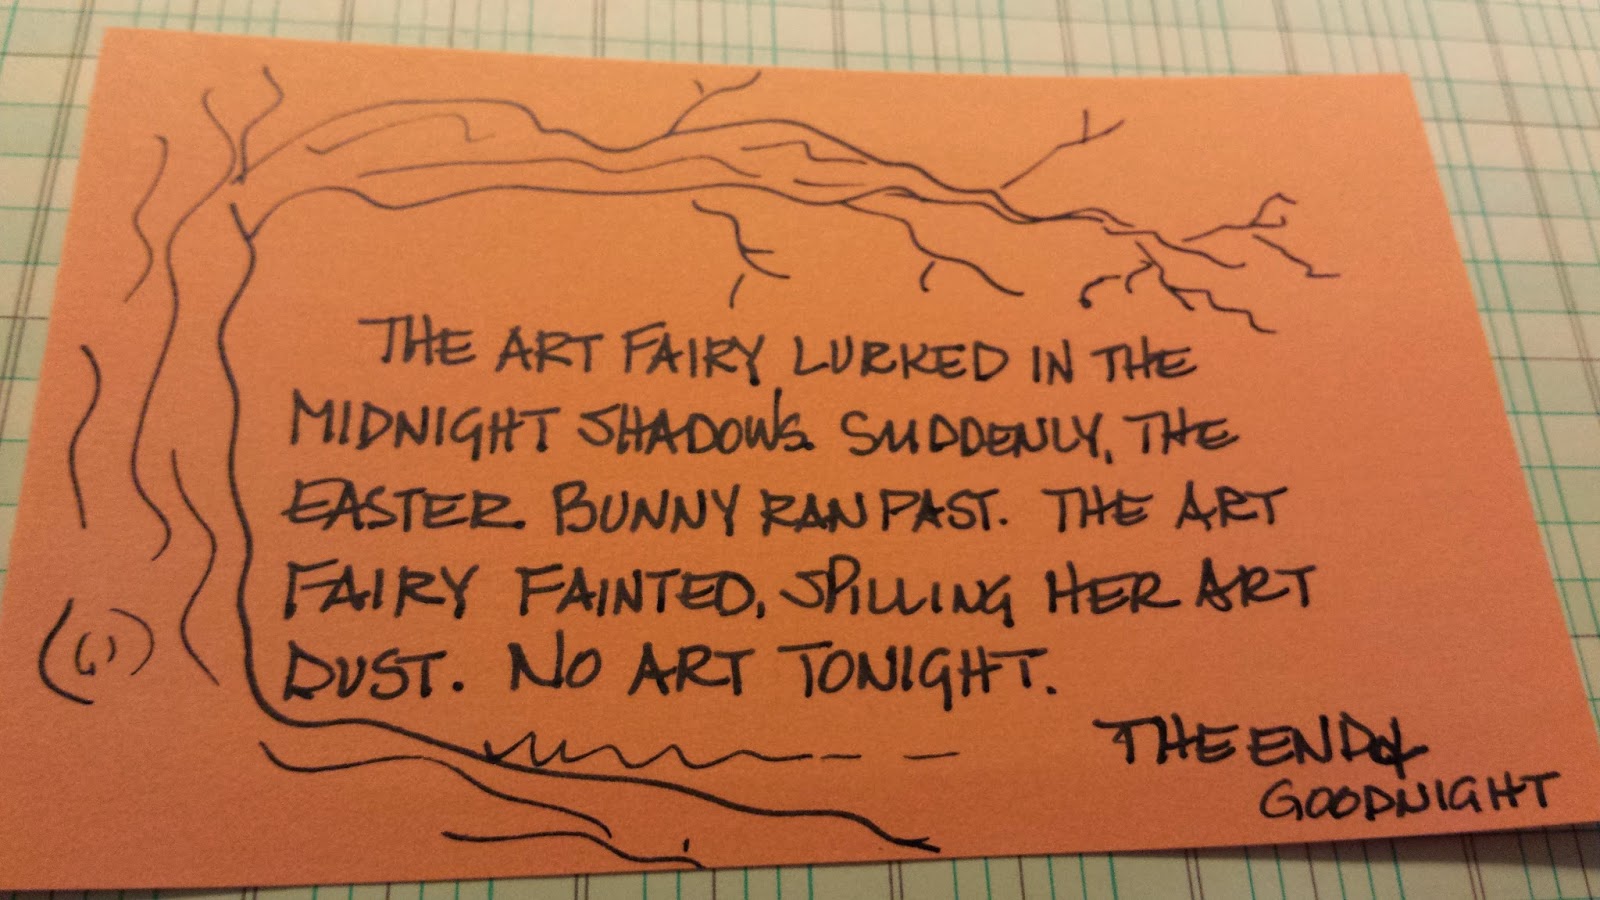 THE ART FAIRY LURKED IN THE
MIDNIGHT SHADOWS. SUDDENLY, THE
EASTER BUNNY RAN PAST. THE ART
FAIRY FAINTED, SPILLING HER ART
DUST. NO ART TONIGHT.
THE END &
GOODNIGHT